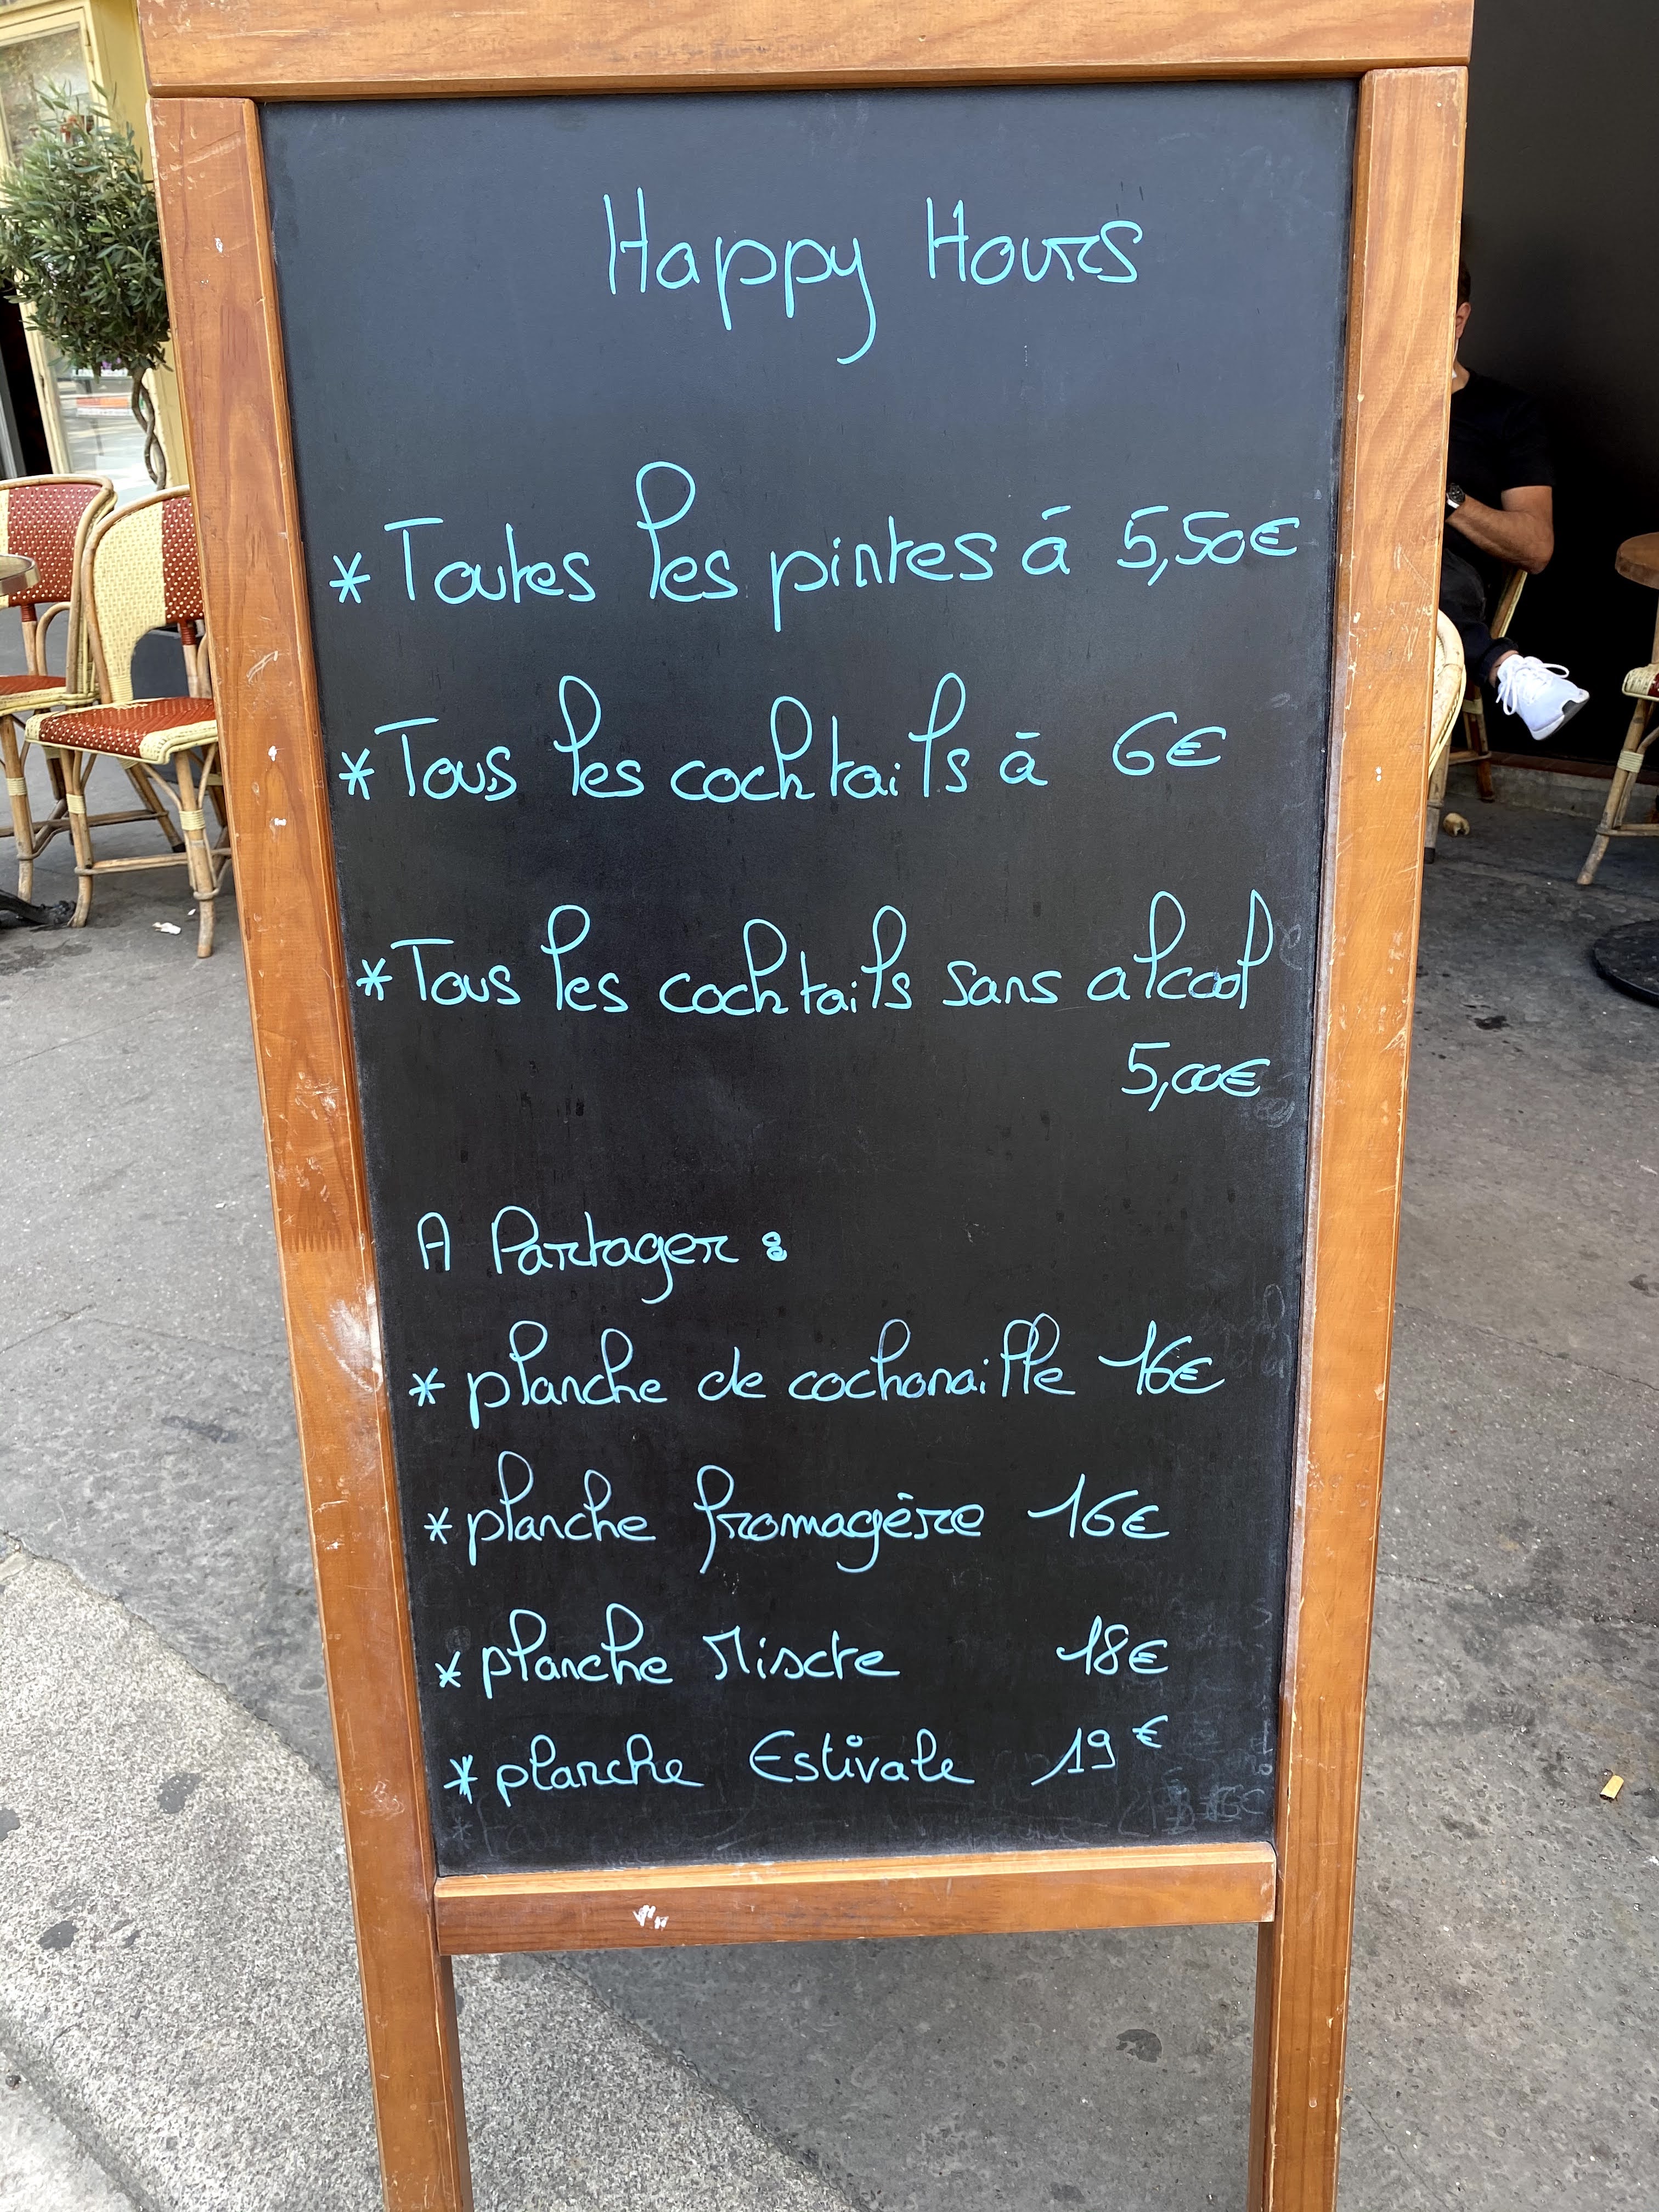 Happy Hours
* Toutes les pintes à 5,50€
* Tous les cocktails à 6€
* Tous les cocktails sans alcool
5,00€
A Partager :
* planche de cochonaille 16€
* planche fromagère 16€
* planche Mixte 18€
* planche Estivale 19€